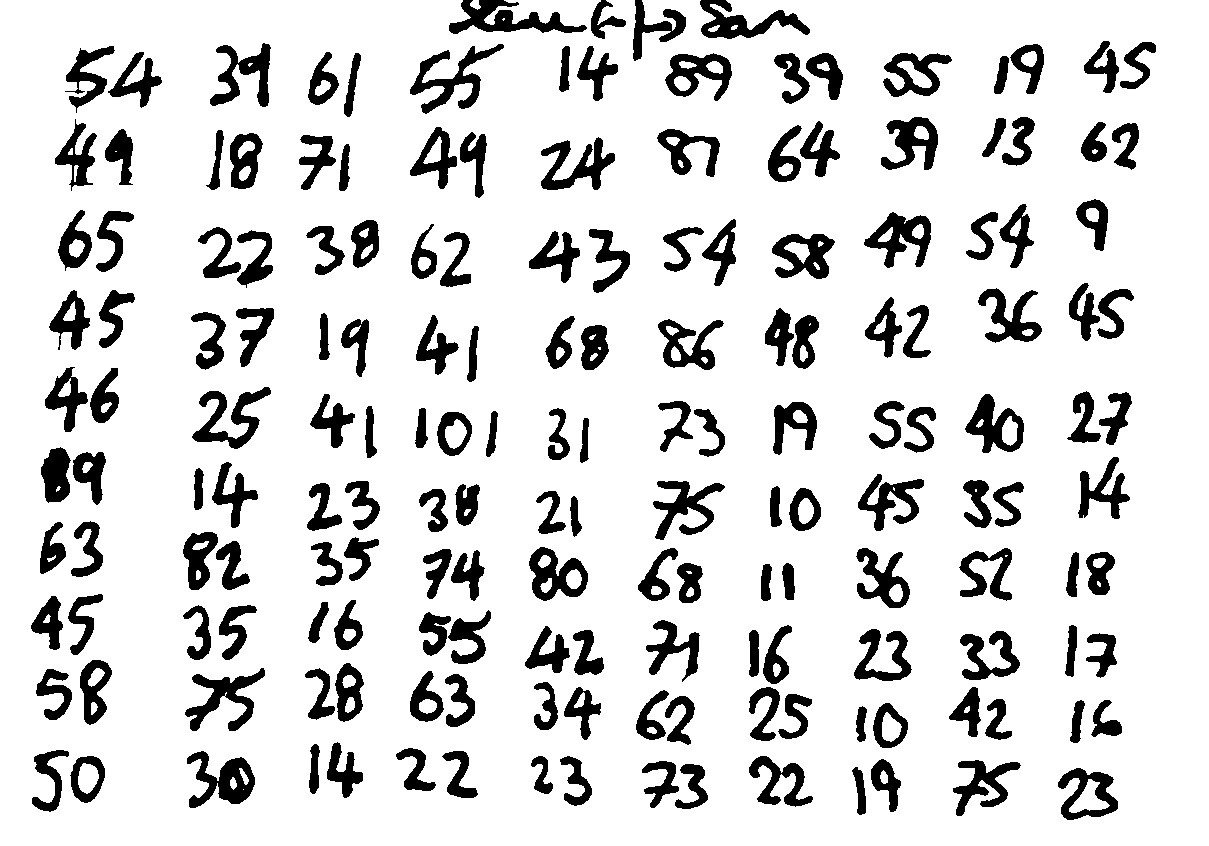 Sam
54 39 61 55 14 89 39 55 19 45
49 18 71 49 24 87 64 39 13 62
65 22 38 62 43 54 58 49 54 9
45 37 19 41 68 86 48 42 36 45
46 25 41 101 31 73 19 55 40 27
89 14 23 38 21 75 10 45 35 14
63 82 35 74 80 68 11 36 52 18
45 35 16 55 42 71 16 23 33 17
58 75 28 63 34 62 25 10 42 16
50 30 14 22 23 73 22 19 75 23